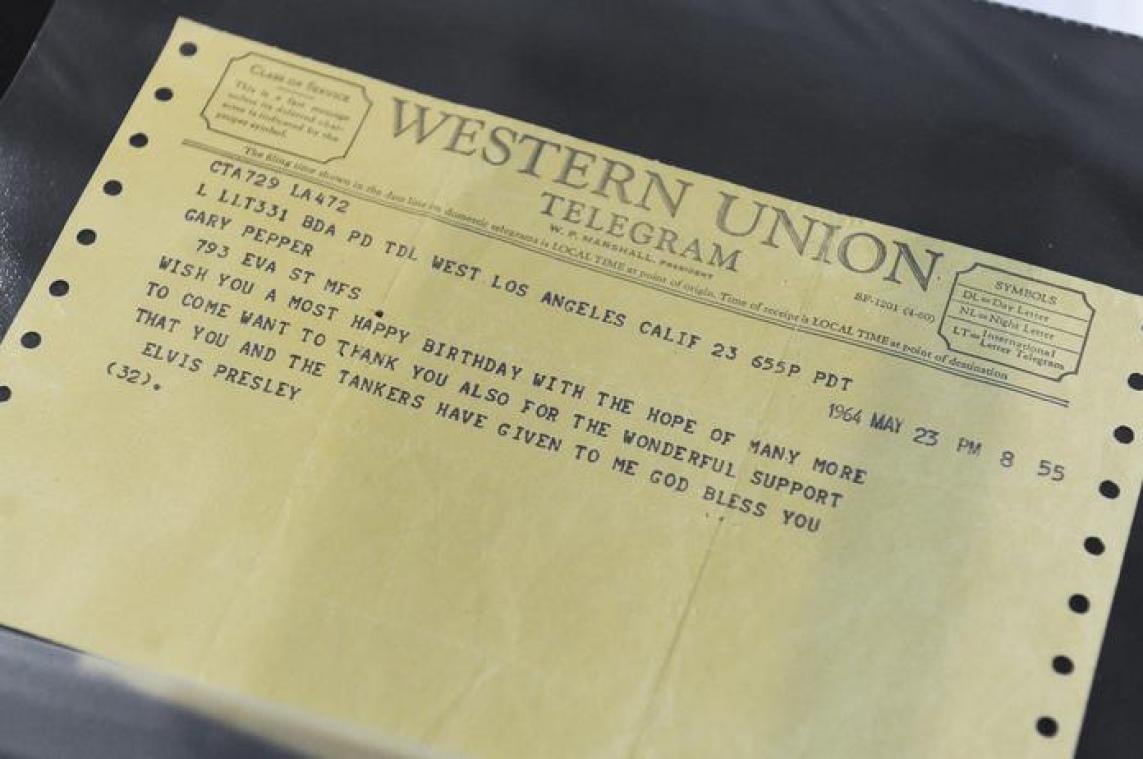 CLASS OF SERVICE
This is a fast message
unless its deferred char-
acter is indicated by the
proper symbol.
WESTERN UNION
TELEGRAM
W. P. MARSHALL, PRESIDENT
SF-1201 (4-60)
SYMBOLS
DL=Day Letter
NL=Night Letter
LT=International
Letter Telegram
The filing time shown in the date line on domestic telegrams is LOCAL TIME at point of origin. Time of receipt is LOCAL TIME at point of destination
CTA729 LA472
L LLT331 BDA PD TDL WEST LOS ANGELES CALIF 23 655P PDT
1964 MAY 23 PM 8 55
GARY PEPPER
793 EVA ST MFS
WISH YOU A MOST HAPPY BIRTHDAY WITH THE HOPE OF MANY MORE
TO COME WANT TO THANK YOU ALSO FOR THE WONDERFUL SUPPORT
THAT YOU AND THE TANKERS HAVE GIVEN TO ME GOD BLESS YOU
ELVIS PRESLEY
(32).